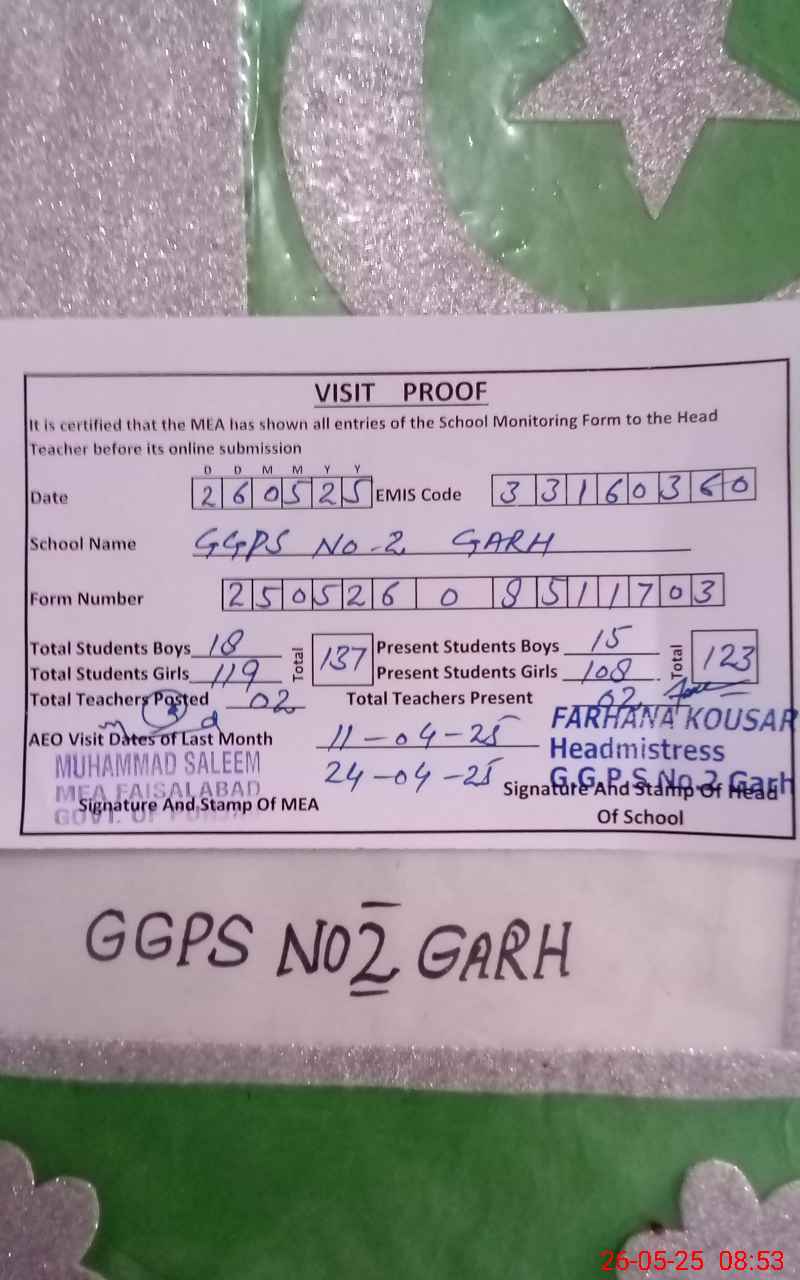 VISIT PROOF
It is certified that the MEA has shown all entries of the School Monitoring Form to the Head
Teacher before its online submission
D D M M Y Y
Date 2 6 0 5 2 5 EMIS Code 3 3 1 6 0 3 6 0
School Name GGPS No-2 GARH
Form Number 2 5 0 5 2 6 0 8 5 1 1 7 0 3
Total Students Boys 18 Total 137 Present Students Boys 15 Total 123
Total Students Girls 119 Present Students Girls 108
Total Teachers Posted 02 Total Teachers Present 02
AEO Visit Dates of Last Month 11-04-25
24-04-25
FARHANA KOUSAR
Headmistress
G.G.P.S No.2 Garh
MUHAMMAD SALEEM
MEA FAISALABAD
GOVT. OF PUNJAB
Signature And Stamp Of MEA
Signature And Stamp Of Head
Of School
GGPS NO2 GARH
26-05-25 08:53